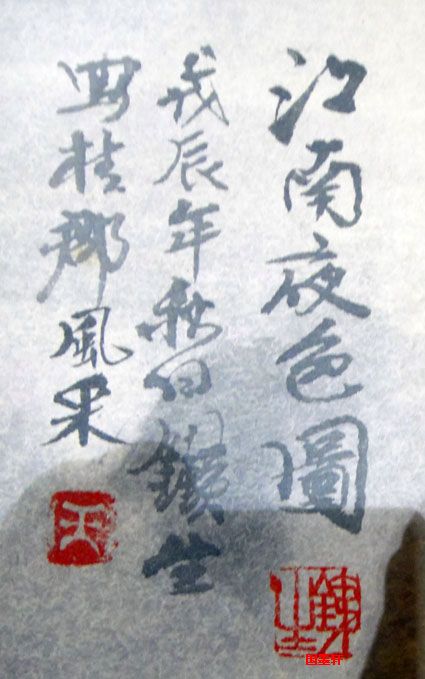 江南夜色圖
戊辰年秋日鐵生
寫桂那風采